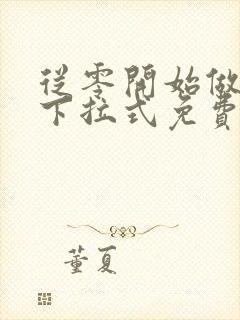 從零開始做
下拉式免費
董夏